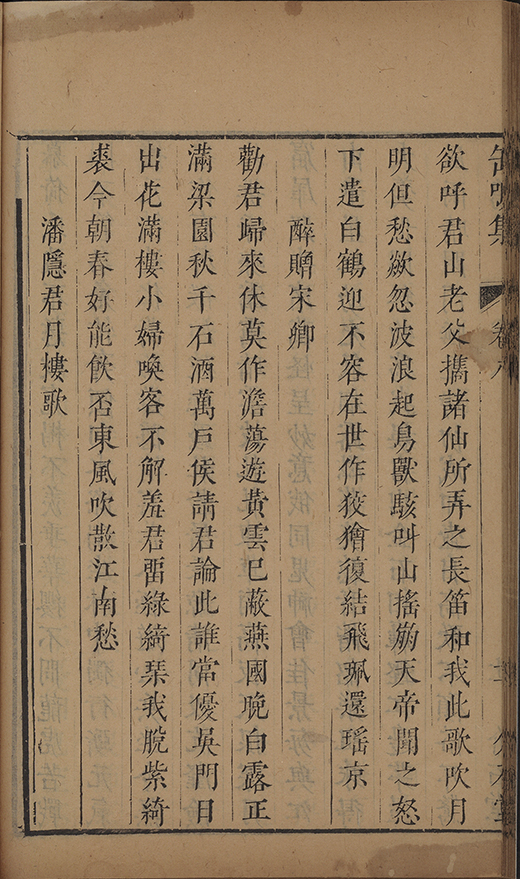 缶鳴集
卷八
欲呼君山老父攜諸仙所弄之長笛和我此歌吹月
明但愁歘忽波浪起鳥獸駭叫山搖崩天帝聞之怒
下遣白鶴迎不容在世作狡獪復結飛珮還瑤京
醉贈宋卿
勸君歸來休莫作澹蕩遊黃雲已蔽燕國晚白露正
滿梁園秋千石酒萬戶侯請君論此誰當優吳門日
出花滿樓小婦喚客不解羞君畱綠綺琴我脫紫綺
裘今朝春好能飲否東風吹散江南愁
潘隱君月樓歌